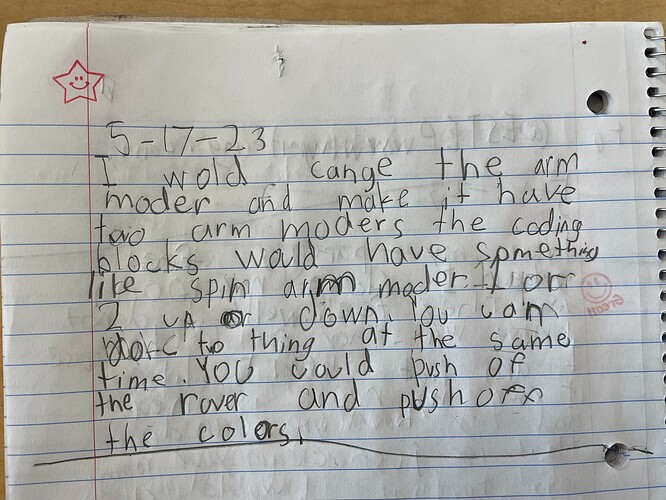 5-17-23
I wold cange the arm
moder and make it have
two arm moders the coding
blocks would have something
like spin arm moder 1 or
2 up or down. You cam
two thing at the same
time. You could push of
the rover and push off
the colors.